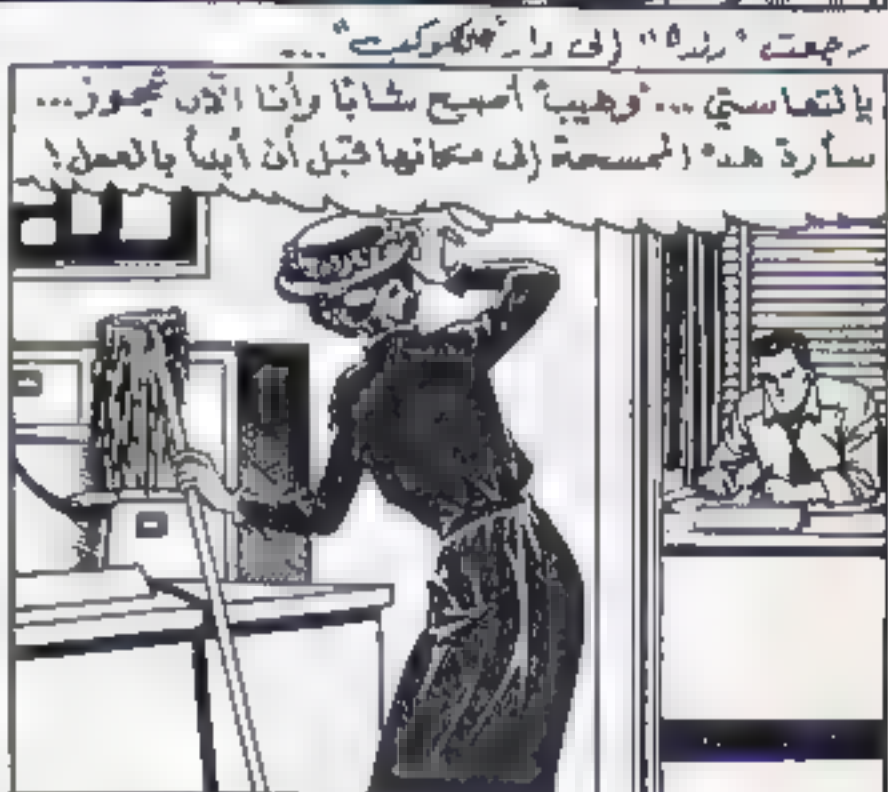 رجعت "رندة" إلى دار "الكوكب"...
يالتعاستي... "وهيب" أصبح شابًا وأنا الآن عجوز...
سأرد هذه الممسحة إلى مكانها قبل أن أبدأ بالعمل!